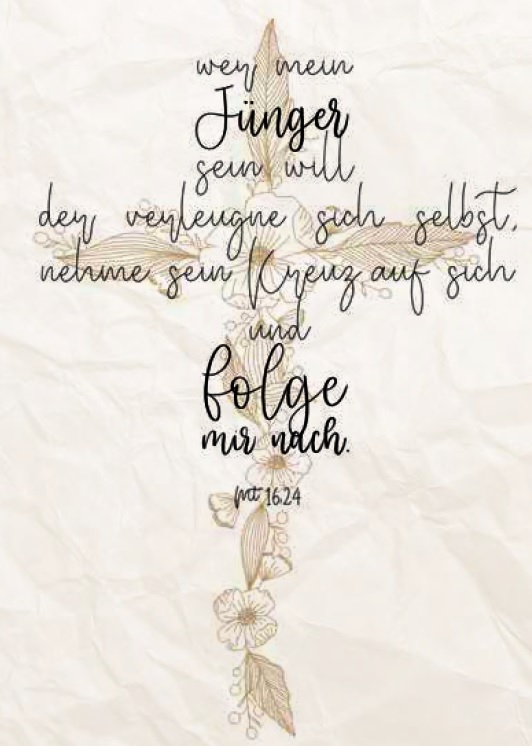 wer mein
Jünger
sein will
der verleugne sich selbst,
nehme sein Kreuz auf sich
und
folge
mir nach.
Mt 16,24